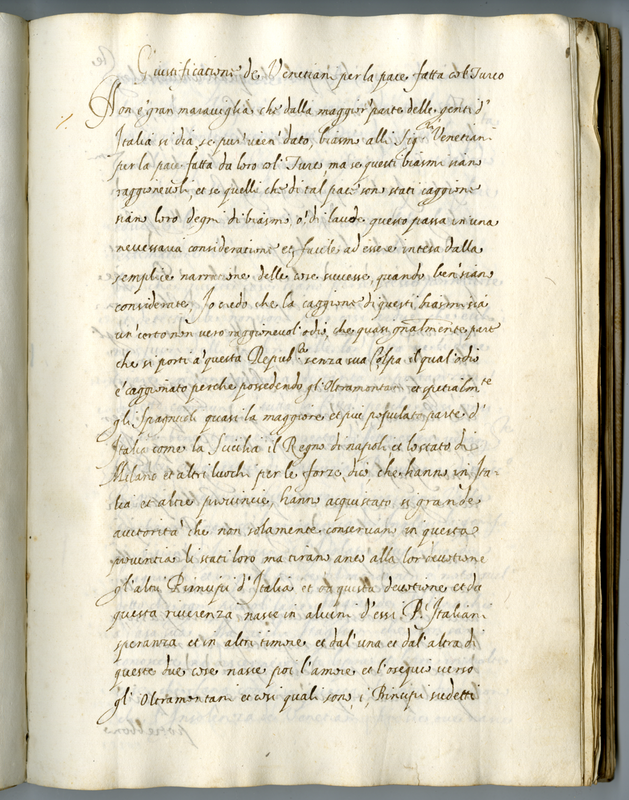 Giustificatione de Venetiani per la pace fatta col Turco
Non e gran maraviglia che dalla maggior parte delle genti d'
Italia si dia, se pur vien dato, biasmo alli Sig.ri Venetiani
per la pace fatta da loro col Turco, ma se questi biasmi sian
raggionevoli, et se quelli che di tal pace son stati caggione
sian loro degni di biasmo, o di laude, questo passa in una
necessaria consideratione et facile ad essere intesa dalla
semplice narratione delle cose successe, quando ben sian
considerate, Io credo che la caggione di questi biasmi sia
un certo non vero raggionevol odio, che quasi gnalmente par
che si porti a questa Repub.ca senza sua Colpa il qual odio
e caggionato perche possedendo gl'Oltramontani et spetialm.te
gli Spagnuoli quasi la maggiore et piu populata parte d'
Italia come la Sicilia il Regno di napoli et lo stato di
Milano et altri luochi per le forze, dico che hanno in Ita-
lia et altre provincie, hanno acquistato si grande
auttorita che non solamente conservan in questa
provintia li stati loro ma tiran anco alla lor devotione
gl'altri Principi d'Italia et da questa devotione et da
questa riverenza nasce in alcuni d'essi P.i Italiani
speranza et in altri timore et dal'una et dal'altra di
queste due cose nasce poi l'amore et l'osequio verso
gl'Oltramontani et cosi quali son i Principi sudetti